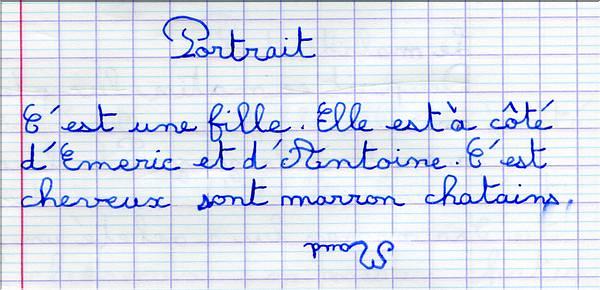 Portrait
C'est une fille. Elle est à côté
d'Emeric et d'Antoine. C'est
cheveux sont marron chatains.
Maud